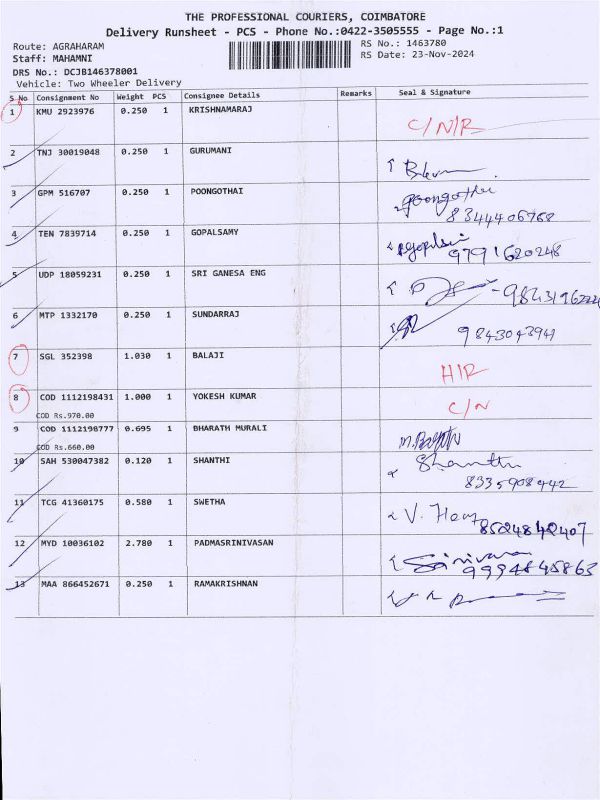 THE PROFESSIONAL COURIERS, COIMBATORE
Delivery Runsheet - PCS - Phone No.:0422-3505555 - Page No.:1
Route: AGRAHARAM
RS No.: 1463780
Staff: MAHAMNI
RS Date: 23-Nov-2024
DRS No.: DCJB146378001
Vehicle: Two Wheeler Delivery
S No Consignment No Weight PCS Consignee Details Remarks Seal & Signature
1 KMU 2923976 0.250 1 KRISHNAMARAJ C/N/R
2 TNJ 30019048 0.250 1 GURUMANI
3 GPM 516707 0.250 1 POONGOTHAI Poongothai
8344406768
4 TEN 7839714 0.250 1 GOPALSAMY
9791620248
5 UDP 18059231 0.250 1 SRI GANESA ENG
6 MTP 1332170 0.250 1 SUNDARRAJ
9843043941
7 SGL 352398 1.030 1 BALAJI H/R
8 COD 1112198431 1.000 1 YOKESH KUMAR C/N
COD Rs.970.00
9 COD 1112198777 0.695 1 BHARATH MURALI
COD Rs.660.00
10 SAH 530047382 0.120 1 SHANTHI Shanthi
8335908442
11 TCG 41360175 0.580 1 SWETHA V. Hem
8524842407
12 MYD 10036102 2.780 1 PADMASRINIVASAN
9994845863
13 MAA 866452671 0.250 1 RAMAKRISHNAN